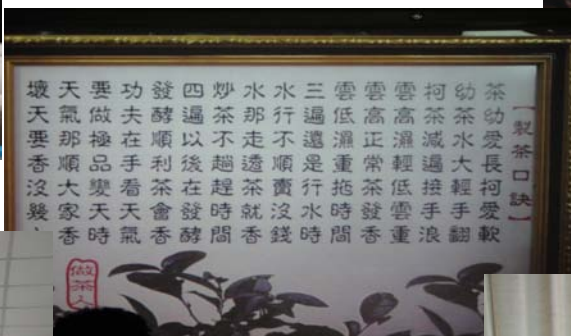 【製茶口訣】
茶幼愛長柯愛軟
幼茶水大輕手翻
柯茶減遍接手浪
雲高濕輕低雲重
雲高正常茶發香
雲低濕重拖時間
三遍還是行水時
水行不順賣沒錢
水那走透茶就香
炒茶不趟趕時間
四遍以後在發酵
發酵順利茶會香
功夫在手看天氣
要做極品變天時
天氣那順大家香
壞天要香沒幾
做茶人